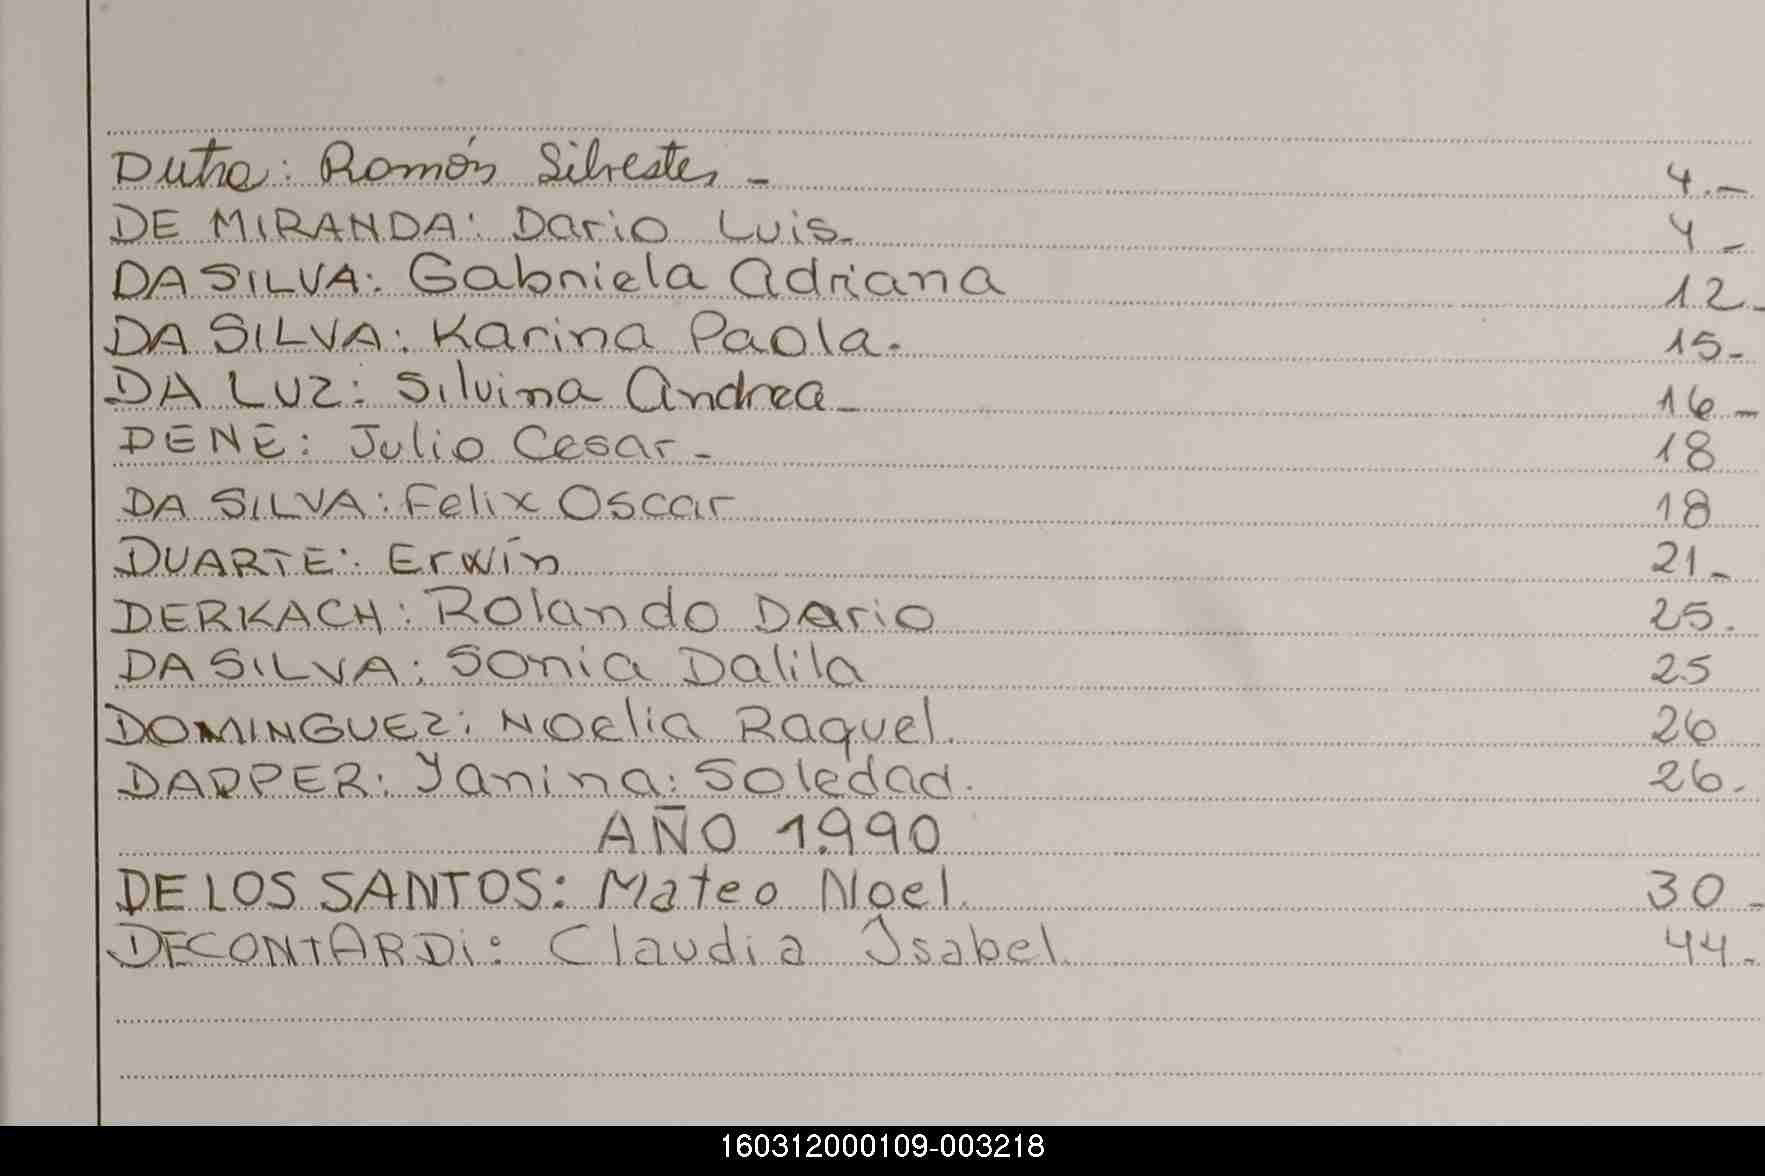 Dutra: Ramón Silvestre, - 4.-
DE MIRANDA: Dario Luis. 4 -
DA SILVA: Gabriela Adriana 12.
DA SILVA: Karina Paola. 15-
DA LUZ: Silvina Andrea - 16 -
DENE: Julio Cesar - 18
DA SILVA: Felix Oscar 18
DUARTE: Erwin 21 -
DERKACH: Rolando Dario 25.
DA SILVA: Sonia Dalila 25
DOMINGUEZ: Noelia Raquel. 26
DAPPER: Yanina: Soledad. 26.
AÑO 1.990
DE LOS SANTOS: Mateo Noel. 30 -
DECONTARDi: Claudia Isabel. 44 -
160312000109-003218